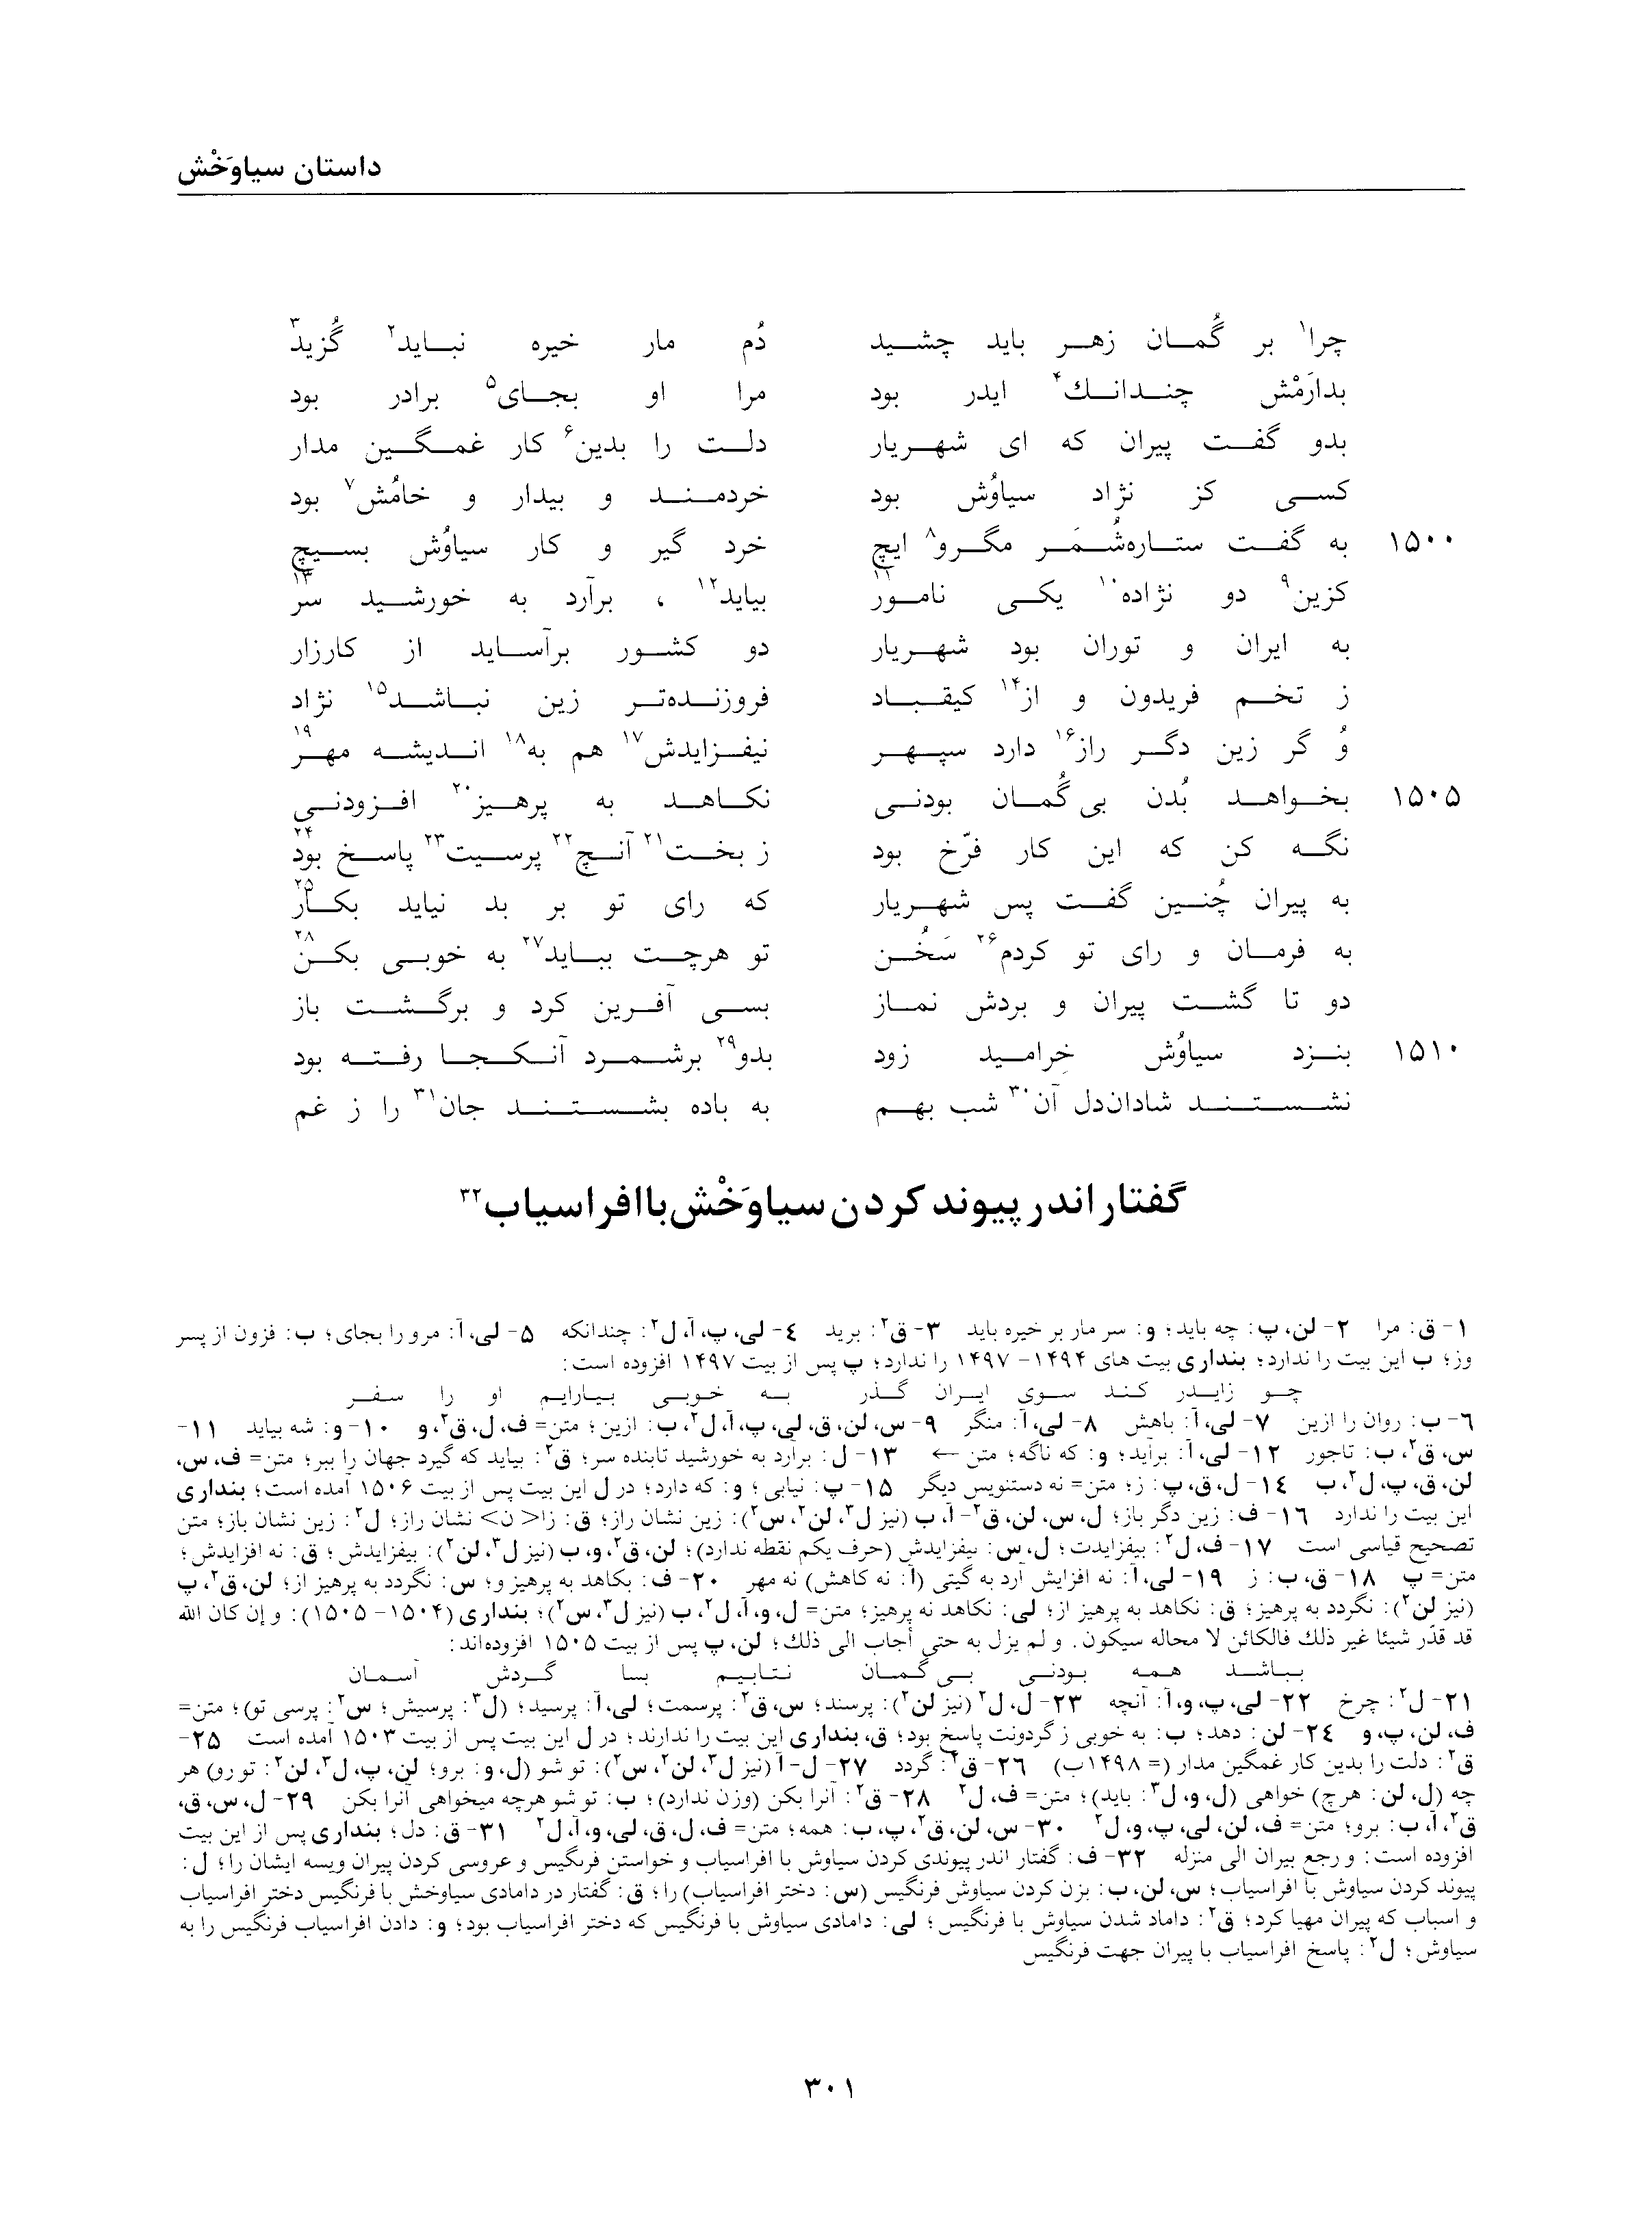 داستان سیاوَخْش
چرا۱ بر گُمان زهر باید چشید دُم مار خیره نباید۲ گُزید۳
بدارَمْش چندانك۴ ایدر بود مرا او بجای۵ برادر بود
بدو گفت پیران که ای شهریار دلت را بدین۶ کار غمگین مدار
کسی کز نژاد سیاوُش بود خردمند و بیدار و خامُش۷ بود
۱۵۰۰ به گفت ستاره‌شُمَر مگرو۸ ایچ خرد گیر و کار سیاوُش بسیچ
کزین۹ دو نژاده۱۰ یکی نامور۱۱ بیاید۱۲ ، برآرد به خورشید سر۱۳
به ایران و توران بود شهریار دو کشور برآساید از کارزار
ز تخم فریدون و از۱۴ کیقباد فروزنده‌تر زین نباشد۱۵ نژاد
وُ گر زین دگر راز۱۶ دارد سپهر نیفزایدش۱۷ هم به۱۸ اندیشه مهر۱۹
۱۵۰۵ بخواهد بُدن بی‌گُمان بودنی نکاهد به پرهیز۲۰ افزودنی
نگه کن که این کار فرّخ بود ز بخت۲۱ آنچ۲۲ پرسیت۲۳ پاسخ بود۲۴
به پیران چُنین گفت پس شهریار که رای تو بر بد نیاید بکار۲۵
به فرمان و رای تو کردم۲۶ سَخُن تو هرچت بباید۲۷ به خوبی بکن۲۸
دو تا گشت پیران و بردش نماز بسی آفرین کرد و برگشت باز
۱۵۱۰ بنزد سیاوُش خِرامید زود بدو۲۹ برشمرد آنکجا رفته بود
نشستند شادان‌دل آن۳۰ شب بهم به باده بشستند جان۳۱ را ز غم
گفتار اندر پیوند کردن سیاوَخْش باافراسیاب۳۲
۱- ق: مرا ۲- لن، پ: چه باید؛ و: سر مار بر خیره باید ۳- ق۲: برید ٤- لی، پ، آ، ل۲: چندانکه ۵- لی، آ: مرو را بجای؛ ب: فزون از پسر
وز؛ ب این بیت را ندارد؛ بنداری بیت های ۱۴۹۴- ۱۴۹۷ را ندارد؛ پ پس از بیت ۱۴۹۷ افزوده است:
چو زایدر کند سوی ایران گذر به خوبی بیارایم او را سفر
٦- ب: روان را ازین ۷- لی، آ: باهش ۸- لی، آ: منگر ۹- س، لن، ق، لی، پ، آ، ل۲، ب: ازین؛ متن= ف، ل، ق۲، و ۱۰- و: شه بیاید ۱۱-
س، ق۲، ب: تاجور ۱۲- لی، آ: برآید؛ و: که ناگه؛ متن ← ۱۳- ل: برآرد به خورشید تابنده سر؛ ق۲: بیاید که گیرد جهان را ببر؛ متن= ف، س،
لن، ق، پ، ل۲، ب ۱٤- ل، ق، پ: ز؛ متن= نه دستنویس دیگر ۱۵- پ: نیابی؛ و: که دارد؛ در ل این بیت پس از بیت ۱۵۰۶ آمده است؛ بنداری
این بیت را ندارد ۱٦- ف: زین دگر باز؛ ل، س، لن، ق۲- آ، ب (نیز ل۳، لن۲، س۲): زین نشان راز؛ ق: زا< ن> نشان راز؛ ل۲: زین نشان باز؛ متن
تصحیح قیاسی است ۱۷- ف، ل۲: بیفزایدت؛ ل، س: بیفزایدش (حرف یکم نقطه ندارد)؛ لن، ق۲، و، ب (نیز ل۳، لن۲): بیفزایدش؛ ق: نه افزایدش؛
متن= پ ۱۸- ق، ب: ز ۱۹- لی، آ: نه افزایش آرد به گیتی (آ: نه کاهش) نه مهر ۲۰- ف: بکاهد به پرهیز و؛ س: نگردد به پرهیز از؛ لن، ق۲، پ
(نیز لن۲): نگردد به پرهیز؛ ق: نکاهد به پرهیز از؛ لی: نکاهد نه پرهیز؛ متن= ل، و، آ، ل۲، ب (نیز ل۳، س۲)؛ بنداری (۱۵۰۴- ۱۵۰۵): و إن كان الله
قد قدّر شيئا غير ذلك فالكائن لا محاله سيكون. و لم يزل به حتى أجاب الى ذلك؛ لن، پ پس از بیت ۱۵۰۵ افزوده‌اند:
بباشد همه بودنی بی‌گمان نتابیم بسا گردش آسمان
۲۱- ل۲: چرخ ۲۲- لی، پ، و، آ: آنچه ۲۳- ل، ل۲ (نیز لن۲): پرسند؛ س، ق۲: پرسمت؛ لی، آ: پرسید؛ (ل۳: پرسیش؛ س۲: پرسی تو)؛ متن=
ف، لن، پ، و ۲٤- لن: دهد؛ ب: به خوبی ز گردونت پاسخ بود؛ ق، بنداری این بیت را ندارند؛ در ل این بیت پس از بیت ۱۵۰۳ آمده است ۲۵-
ق۲: دلت را بدین کار غمگین مدار (= ۱۴۹۸ب) ۲٦- ق۲: گردد ۲۷- ل- آ (نیز ل۳، لن۲، س۲): تو شو (ل، و: برو؛ لن، پ، ل۳، لن۲: تو رو) هر
چه (ل، لن: هرچ) خواهی (ل، و، ل۳: باید)؛ متن= ف، ل۲ ۲۸- ق۲: آنرا بکن (وزن ندارد)؛ ب: تو شو هرچه میخواهی آنرا بکن ۲۹- ل، س، ق،
ق۲، آ، ب: برو؛ متن= ف، لن، لی، پ، و، ل۲ ۳۰- س، لن، ق۲، پ، ب: همه؛ متن= ف، ل، ق، لی، و، آ، ل۲ ۳۱- ق: دل؛ بنداری پس از این بیت
افزوده است: و رجع بیران الی منزله ۳۲- ف: گفتار اندر پیوندی کردن سیاوش با افراسیاب و خواستن فرنگیس و عروسی کردن پیران ویسه ایشان را؛ ل:
پیوند کردن سیاوش با افراسیاب؛ س، لن، ب: بزن کردن سیاوش فرنگیس (س: دختر افراسیاب) را؛ ق: گفتار در دامادی سیاوخش با فرنگیس دختر افراسیاب
و اسباب که پیران مهیا کرد؛ ق۲: داماد شدن سیاوش با فرنگیس؛ لی: دامادی سیاوش با فرنگیس که دختر افراسیاب بود؛ و: دادن افراسیاب فرنگیس را به
سیاوش؛ ل۲: پاسخ افراسیاب با پیران جهت فرنگیس
۳۰۱